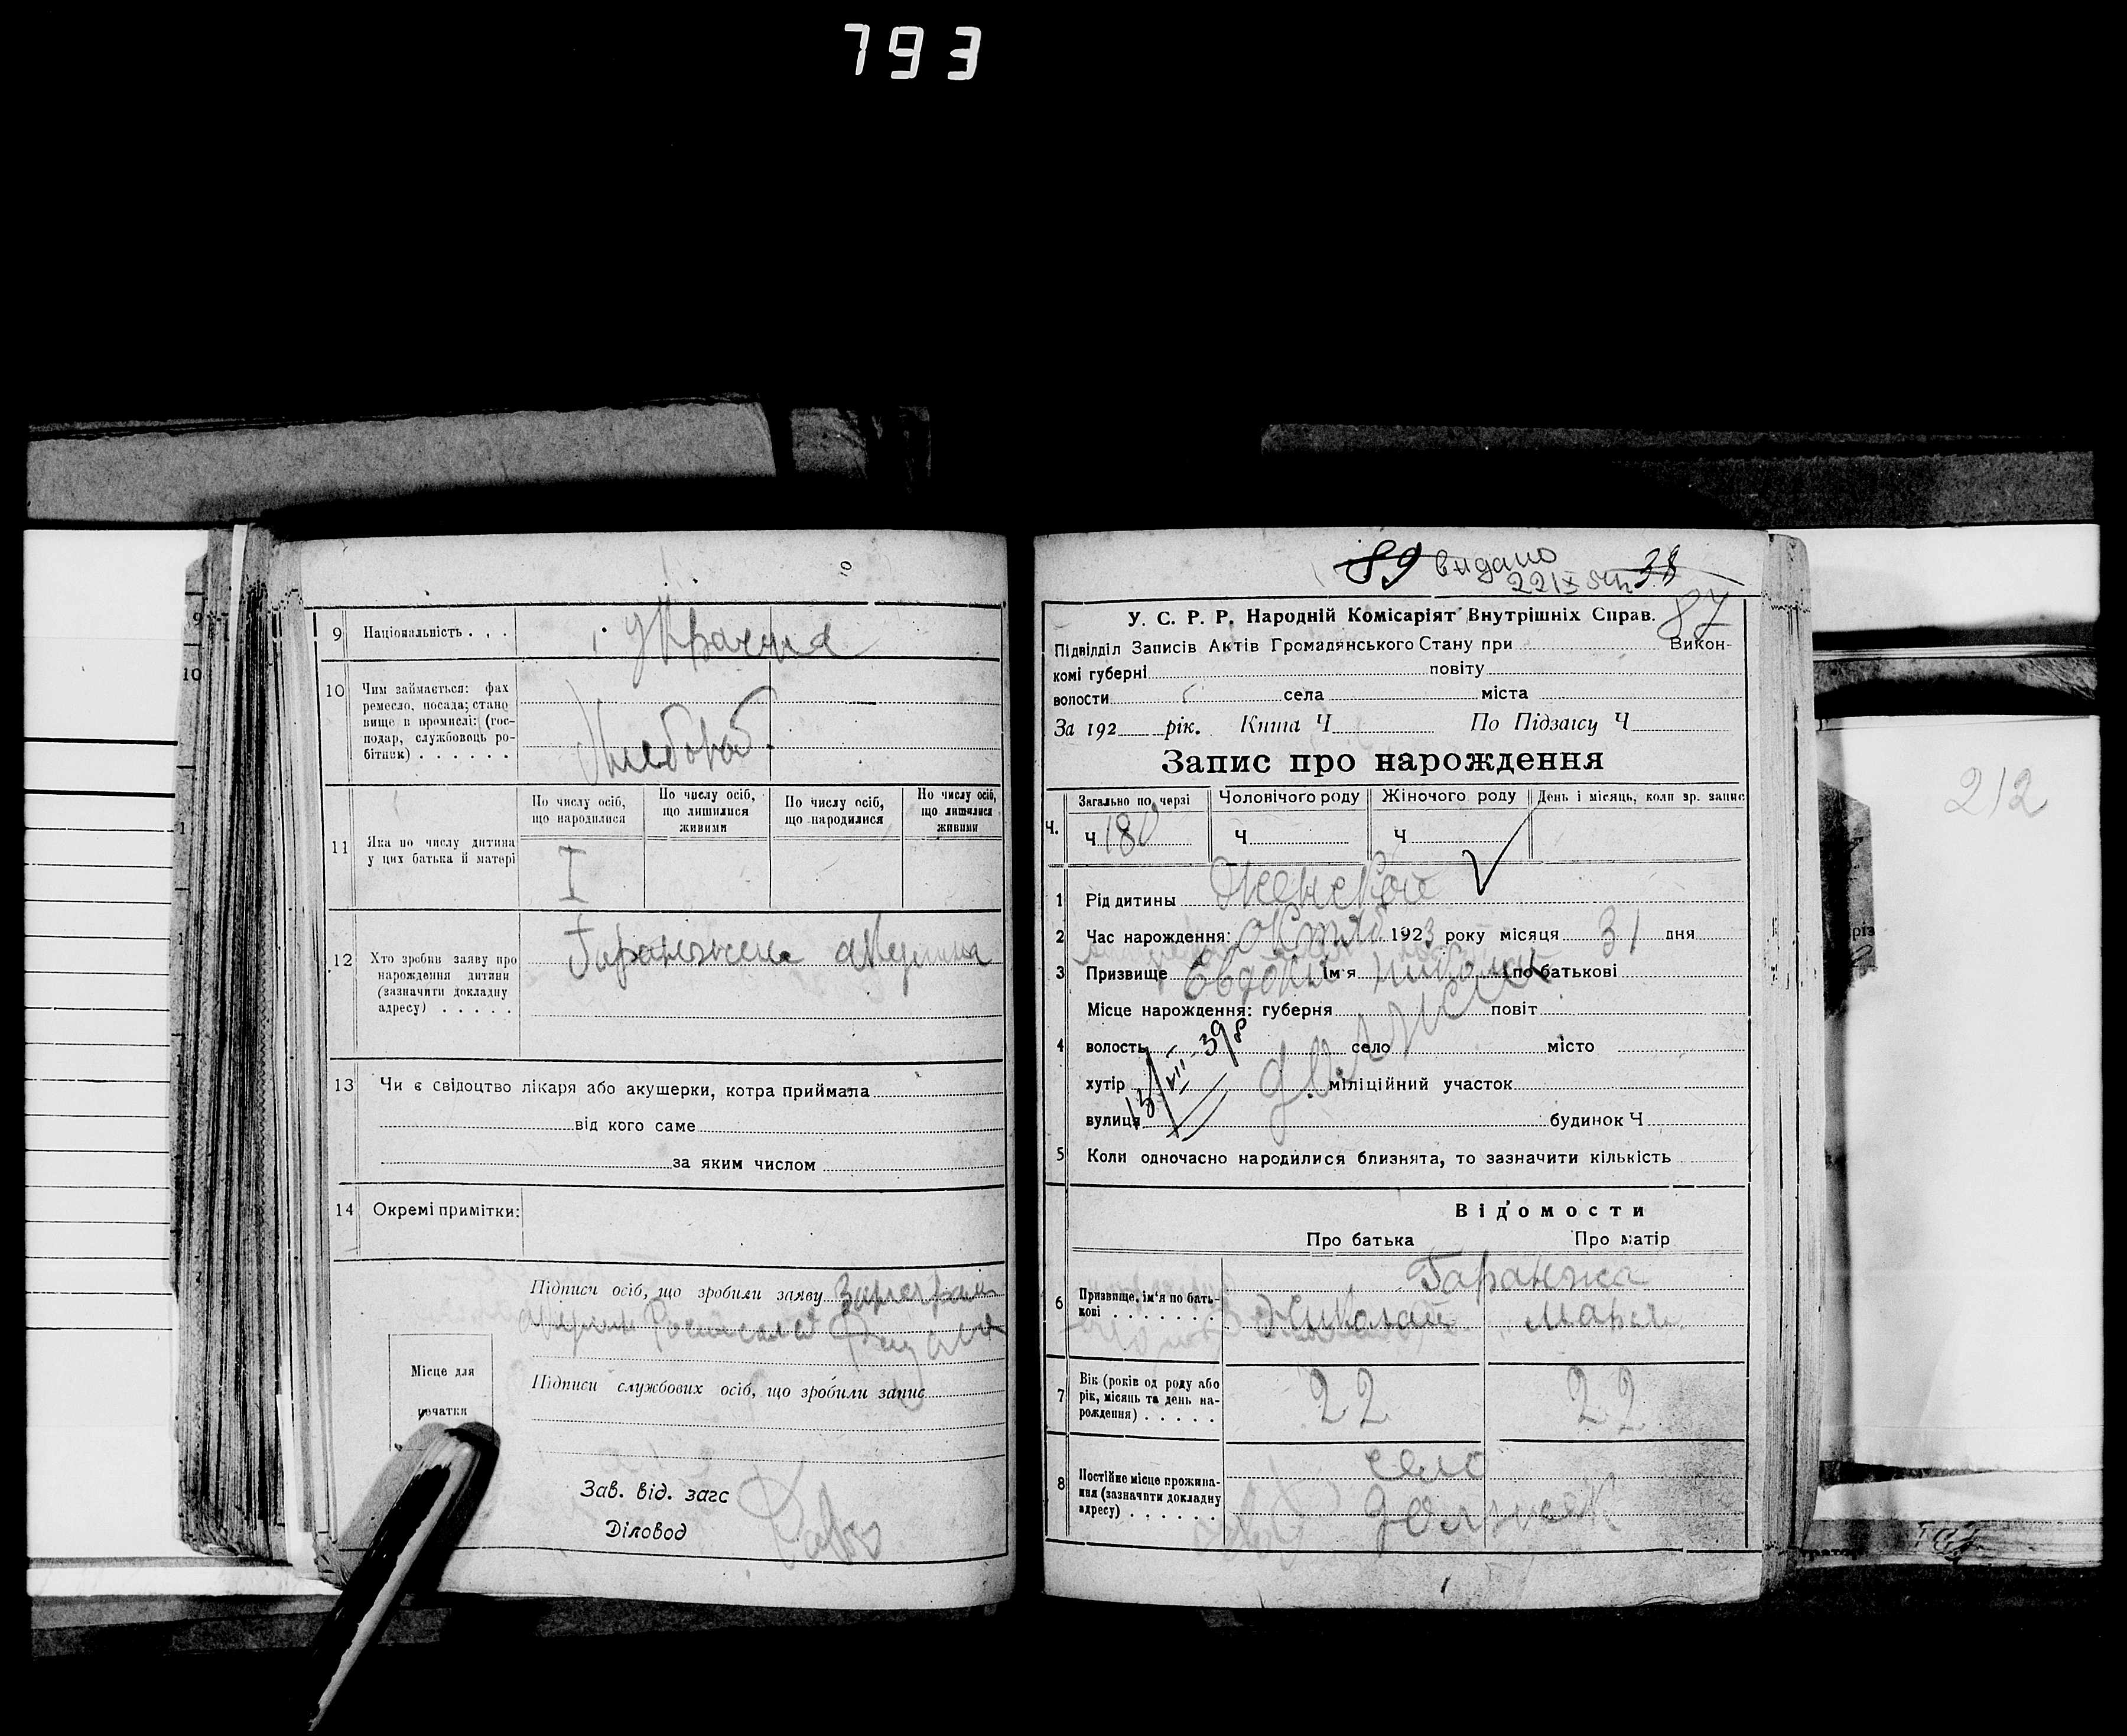 793
10
9 Національність . . . Украина
10 Чим займається: фах
ремесло, посада; стано
вище в промислі: (гос-
подар, службовець ро-
бітник) . . . . . .
Хлебороб.
11 Яка по числу дитина
у цих батька й матері
По числу осіб,
що народилися
По числу осіб,
що лишилися
живими
По числу осіб,
що народилися
По числу осіб,
що лишилися
живими
I
12 Хто зробив заяву про
нарождення дитини
(зазначити докладну
адресу) . . . . .
13 Чи є свідоцтво лікаря або акушерки, котра приймала
від кого саме
за яким числом
14 Окремі примітки:
Підписи осіб, що зробили заяву
Місце для
печатки
Підписи службових осіб, що зробили запис
Зав. від. загс
Діловод
89 видано 38
22 IX
87
У. С. Р. Р. Народній Комісаріят Внутрішніх Справ.
Підвідділ Записів Актів Громадянського Стану при Викон-
комі губерні повіту
волости села міста
За 192 рік. Книга Ч По Підзагсу Ч
Запис про нарождення
Ч.
Загально по черзі
Ч 180
Чоловічого роду
Ч
Жіночого роду
Ч
День і місяць, коли зр. запис
1 Рід дитины Женской
2 Час нарождення: Октяб 1923 року місяця 31 дня
3 Призвище Евдоки ім'я по батькові
Місце нарождення: губерня повіт
4 волость село місто
хутір міліційний участок
вулиця будинок Ч
13/VII-39р
5 Коли одночасно народилися близнята, то зазначити кількість
Відомости
Про батька Про матір
6 Призвище, ім'я по бать-
кові . . . . . . .
Гаранжа
Николай Мария
7 Вік (років од роду або
рік, місяць та день на-
рождення) . . . . .
22 22
8 Постійне місце прожива-
ння (зазначити докладну
адресу) . . . . . .
село
Должек
212